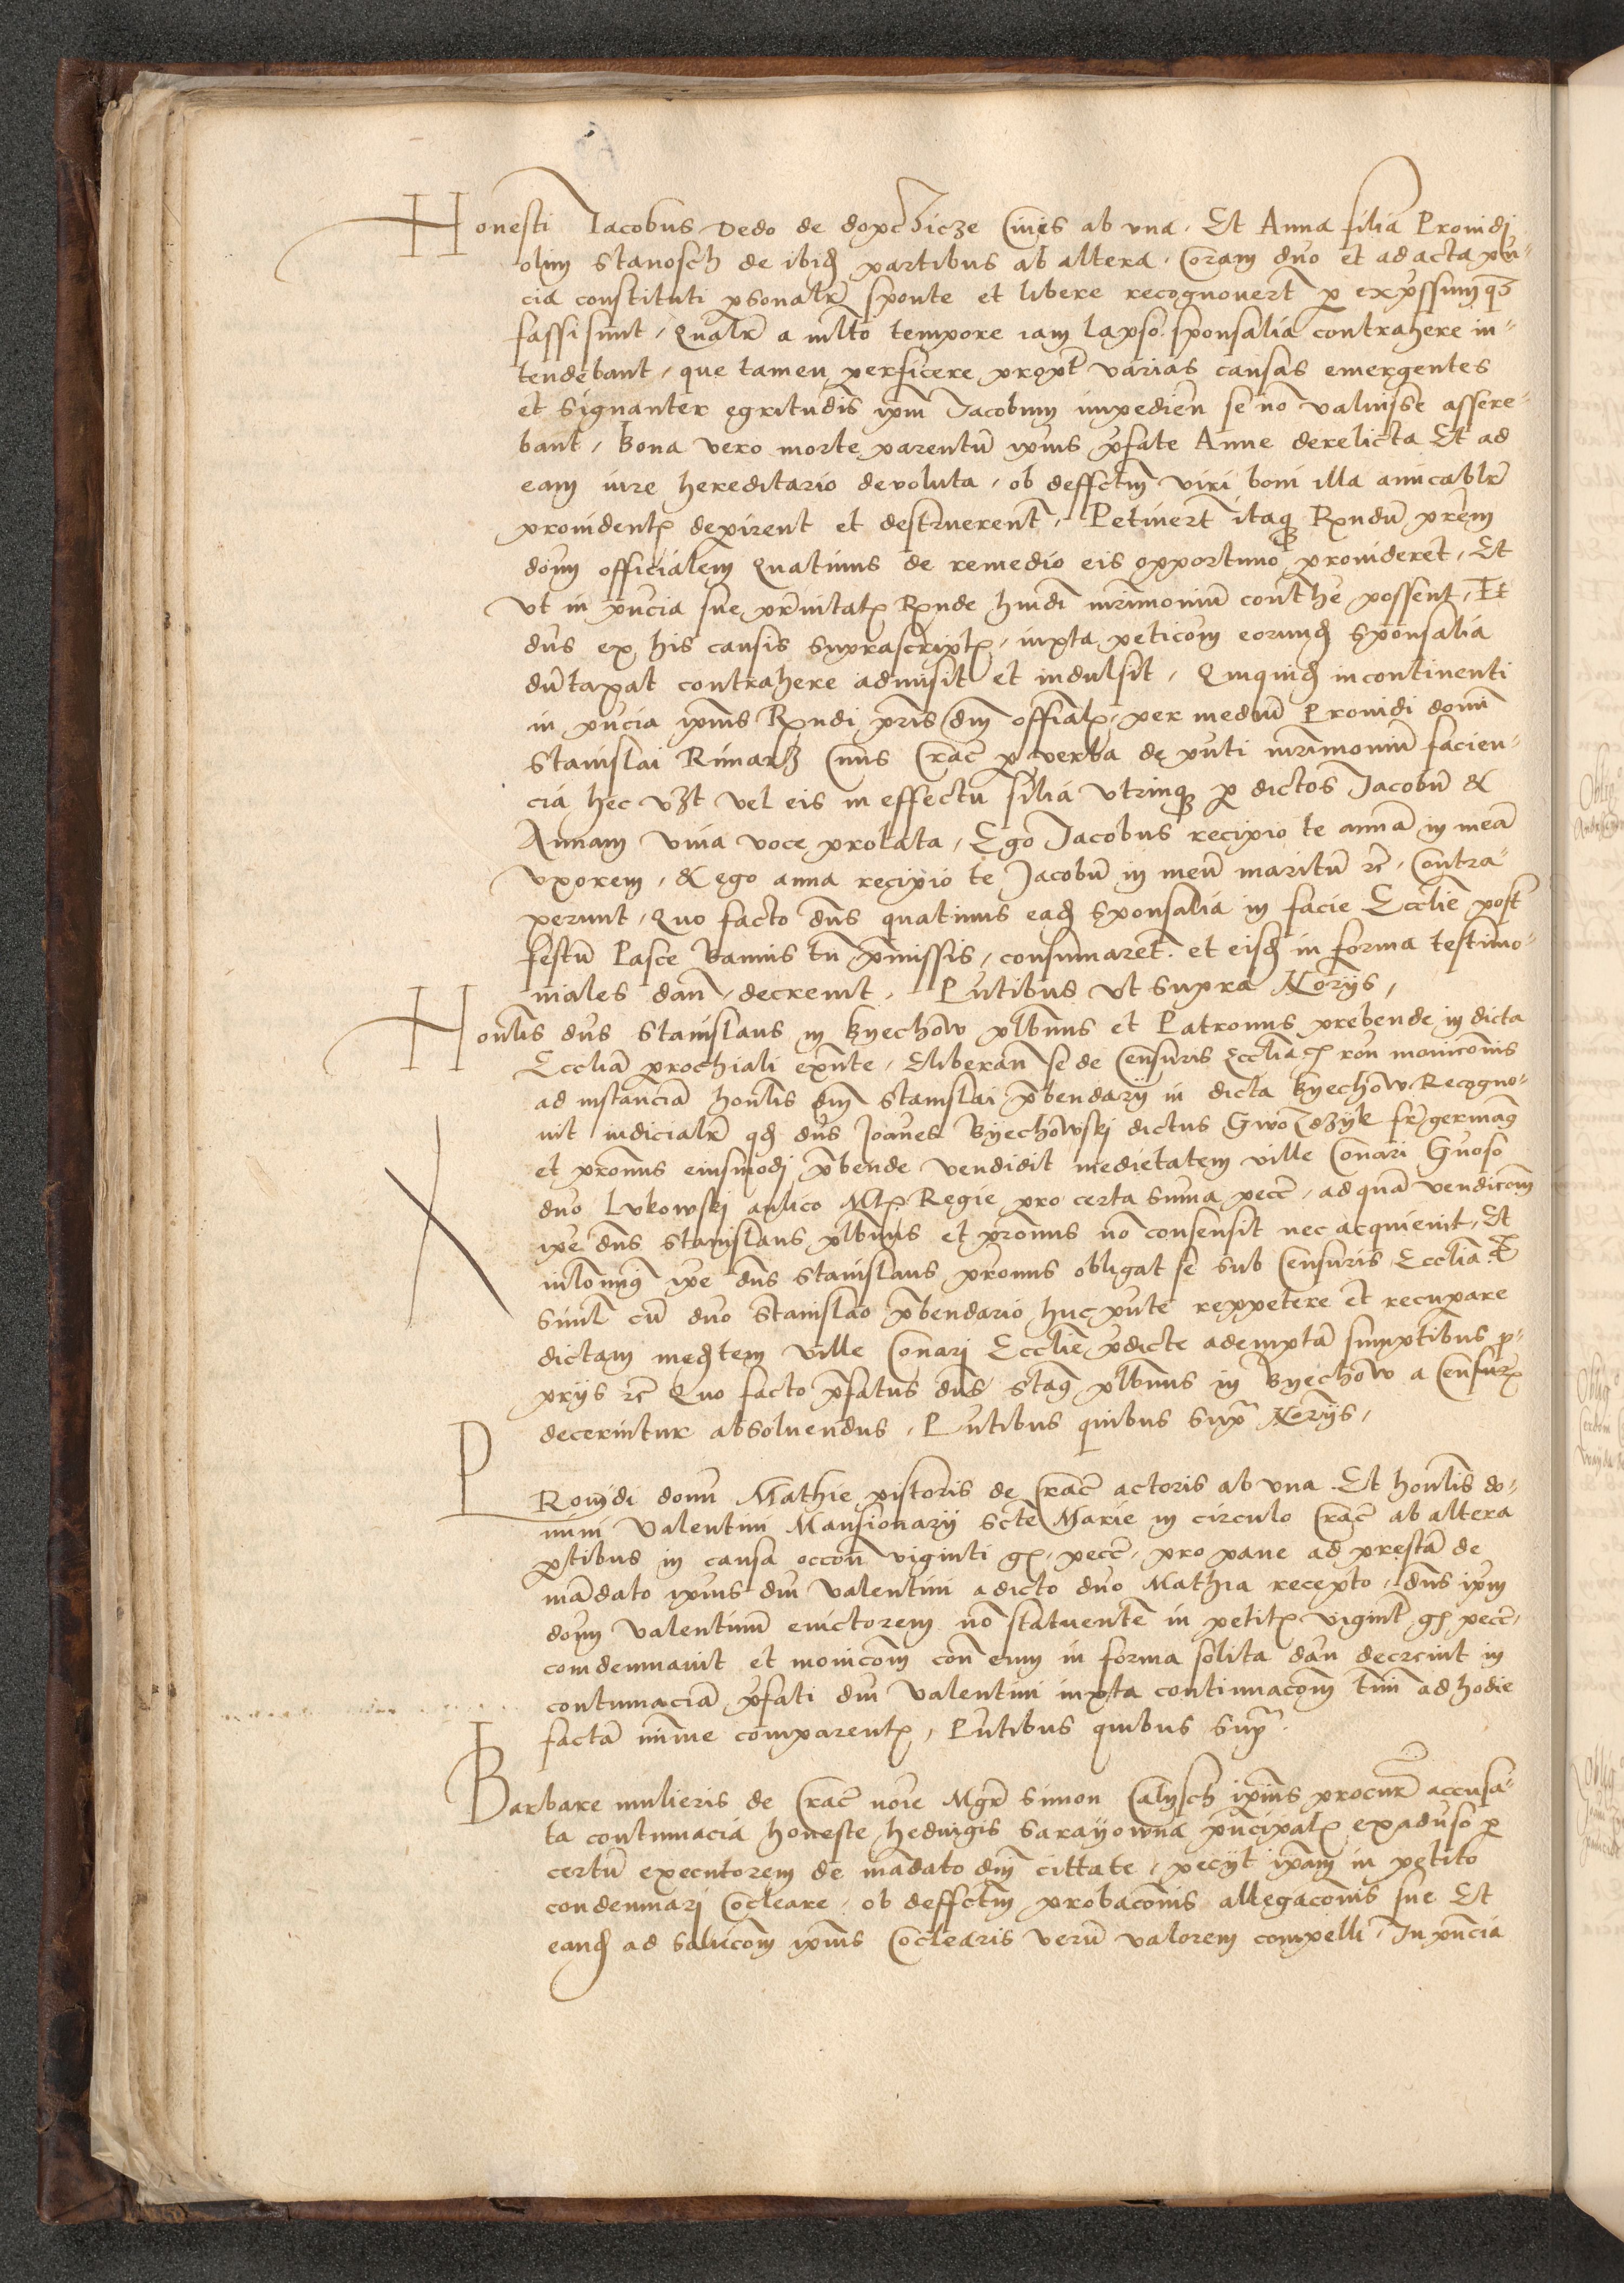 Honesti Jacobus Dedo de dopchicze Cives ab vna. Et Anna filia Providi
olim Stanosch de ibid partibus ab altera. Coram dno et ad acta pn-
cia constituti psonalr sponte et libere recognovert p expssumq3
fassi sunt, Qualr a mlto tempore iam lapso sponsalia contrahere in-
tendebant, que tamen perficere propt varias causas emergentes
et signanter egritudis ipm Jacobum impedien se no valuisse assere-
bant, bona vero morte parentu ipius pfate Anne derelicta Et ad
eam iure hereditario devoluta, ob deffctm viri boni illa amicablr
providentz depirent et destruerent, Petivert itaq Rndu prem
dom officialem Quatinus de remedio eis opportuno provideret, Et
vt in pncia sue prnitatz Rnde hmdi mrimoniu conthe possent, Et
dns ex his causis suprascriptz, iuxta peticom eorund sponsalia
duntaxat contrahere admisit et indulsit, Quiquid incontinenti
in pncia ipius Rndi pris dni offialz, per mediu Providi domi
Stanislai Rimarz Civis Crac p verba de pnti mrimoniu facien-
cia hec vzt vel eis in effectu silia vtrinq p dictos Jacobu &
Annam viva voce prolata, Ego Jacobus recipio te anna in mea
vxorem, & ego anna recipio te Jacobu in meu maritu rc, Contra-
xerunt, Quo facto dns quatinus ead sponsalia in facie Ecclie post
festu Pasce bannis tn pmissis, consummaret. et eisd in forma testimo-
niales dan, decrevit, Pntibus vt supra Norijs,
Honlis dns Stanislaus in Byechow plbnus et Patronus prebende in dicta
Ecclia prochiali exnte, Eliberan se de Censuris Ecclia rou monicomis
ad instancia honlis dni Stanislai pbendarij in dicta Byechow Recogno-
vit iudicialr qd dns Joanes Byechowski dictus Gwozdzyk fr german
et pronus eiusmodi pbende vendidit medietatem ville Conari Gnoso
dno Lukowski aulico Mtz Regie pro certa suma pecc, ad qua vendicom
ipe dns Stanislaus plbnus et pronus no consensit nec acquievit, Et
ipe dns Stanislaus pronus obligat se sub Censuris Ecclia
simul cu dno Stanislao pbendario huc pnte reppetere et recupare
dictam medtem ville Conari Ecclie pdicte adempta sumptibus p-
prijs rc Quo facto pfatus dns Stans plbnus in Byechow a Censurz
decernitur absolvendus, Pntibus quibus supra Norijs,
PRovidi domi Mathie pistoris de Crac actoris ab vna Et honlis do-
mini Valentini Mansionarij Scte Marie in circulo Crac ab altera
ptibus in causa occon viginti gz, pecc, pro pane ad presta de
madato ipius dni Valentini a dicto dno Mathia recepto, dns ipm
dom Valentinum evictorem no statuente in petitz vigint gz pecc,
comdemnavit et monicom con eum in forma solita dan decrevit in
contumacia pfati dni Valentini iuxta continuacom tmi ad hodie
facta mime comparentz, Pntibus quibus supr.
Barbare mulieris de Crac noie Mgr Simon Calysch ipius procur accusa-
ta contumacia honeste Hedvigis Sarayowna pncipalz ex aduso p
certu executorem de madato dni cittate, petijt ipam in petito
condemnari Cocleare, ob deffctm probacomis allegacomis sue Et
eand ad solucom ipius Coclearis veru valorem compelli, In pncia